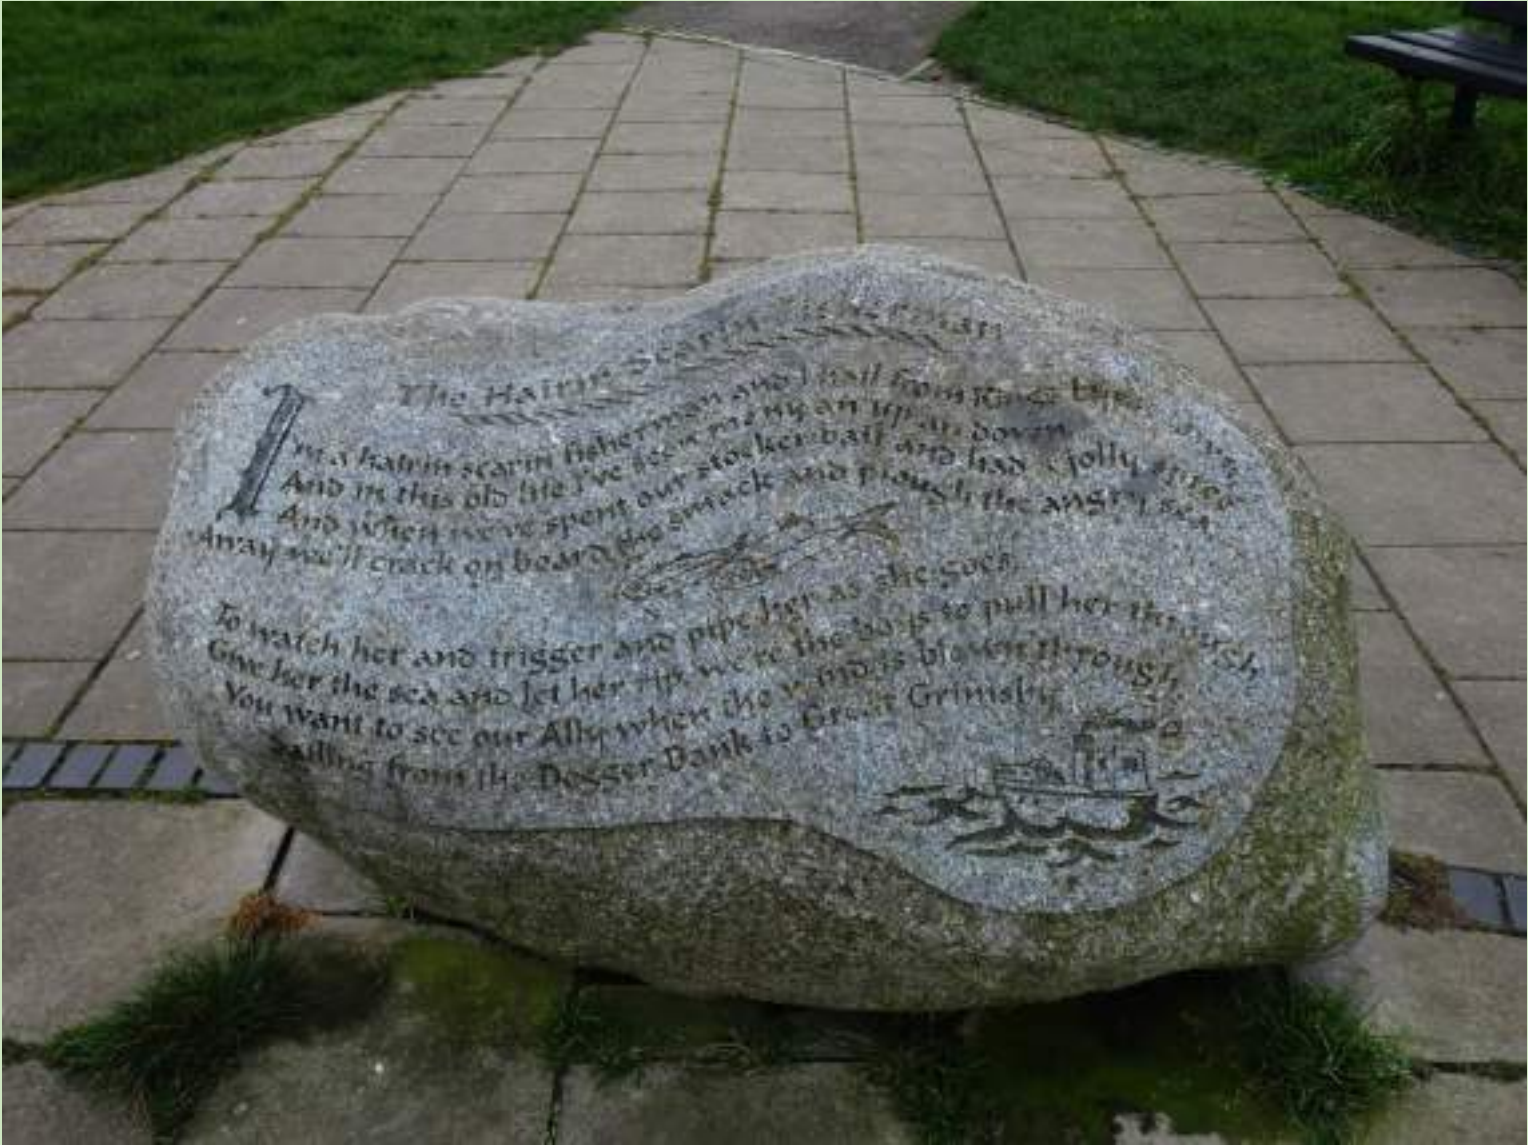 The Hairin Scarin Fisherman
I'm a hairin scarin fisherman and I hail from King's Lynn
And in this old life I've seen many an up an down
And when we've spent our stocker-bait and had a jolly spree
Away we'll crack on board the smack and plough the angry sea
To watch her and trigger and pipe her as she goes
Give her the sea and let her rip, we're the boys to pull her through
You want to see our Ally when the wind is blown through
Sailing from the Dogger Bank to Great Grimsby